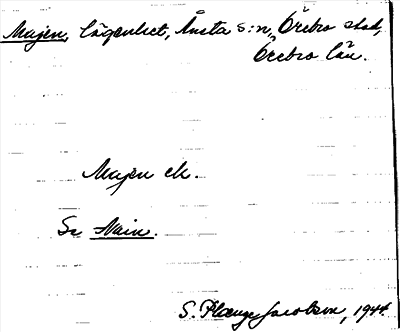 Majen, lägenhet, Ånsta s:n, Örebro stad,
Örebro län.
Majen ek.
Se Nain.
S. Plænge Jacobson, 1944